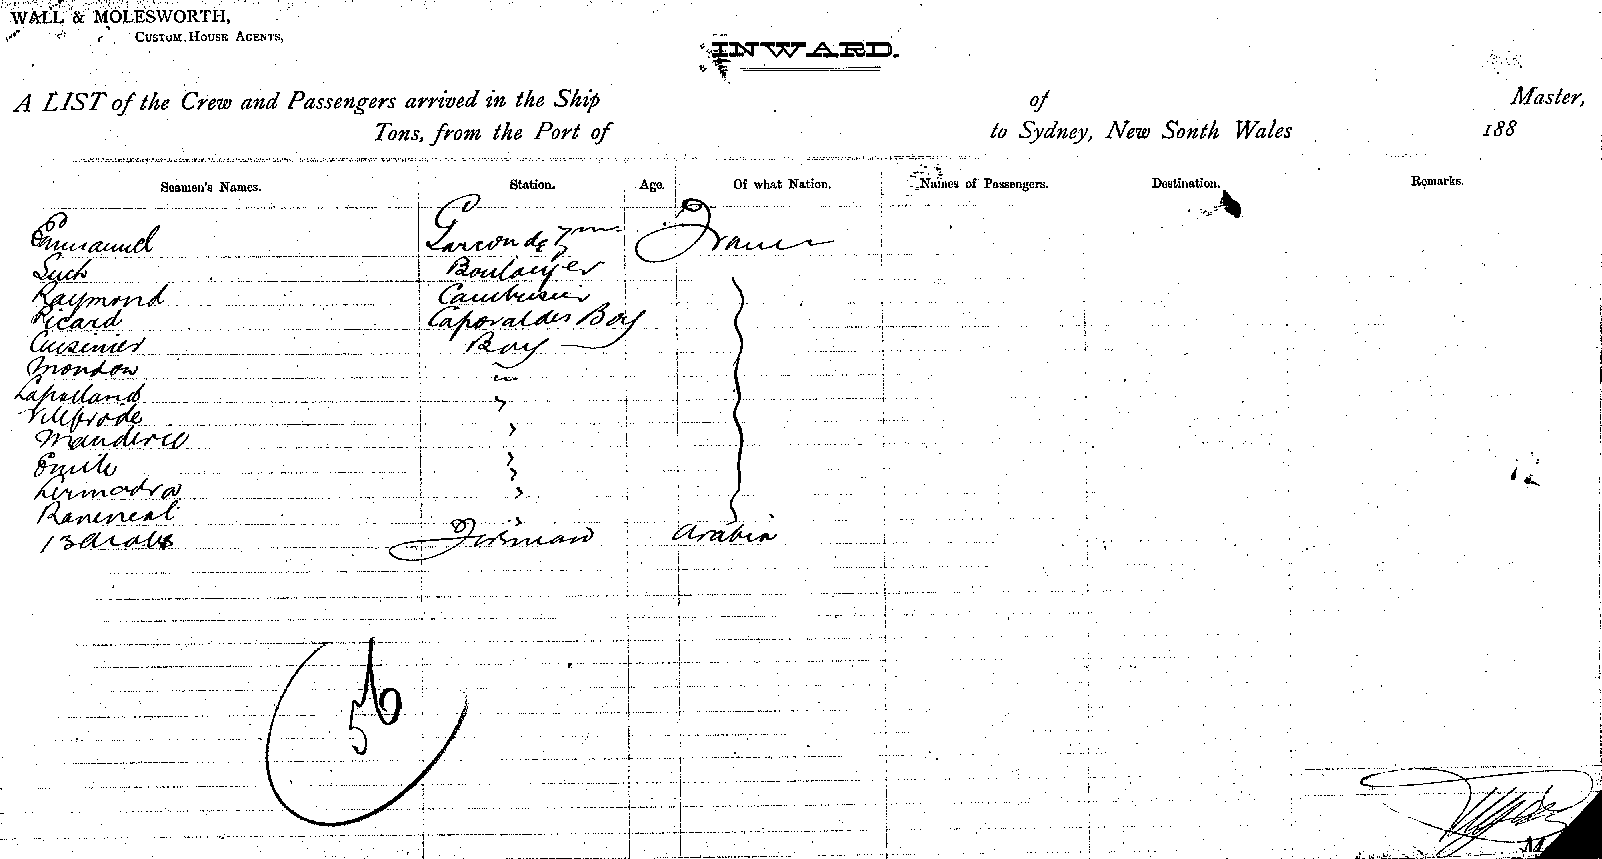 WALL & MOLESWORTH,
CUSTOM HOUSE AGENTS,
INWARD.
A LIST of the Crew and Passengers arrived in the Ship of Master,
Tons, from the Port of to Sydney, New South Wales 188
Seamen's Names. Station. Age. Of what Nation. Names of Passengers. Destination. Remarks.
Emmanuel Garcon de France
Such Boulanger
Raymond Cambusier
Picard Caporal des Boy
Cuisinier Boy
Mondow "
Lapelland "
Villebrode "
"
Emile "
"
13 Arabs Fireman Arabia
56